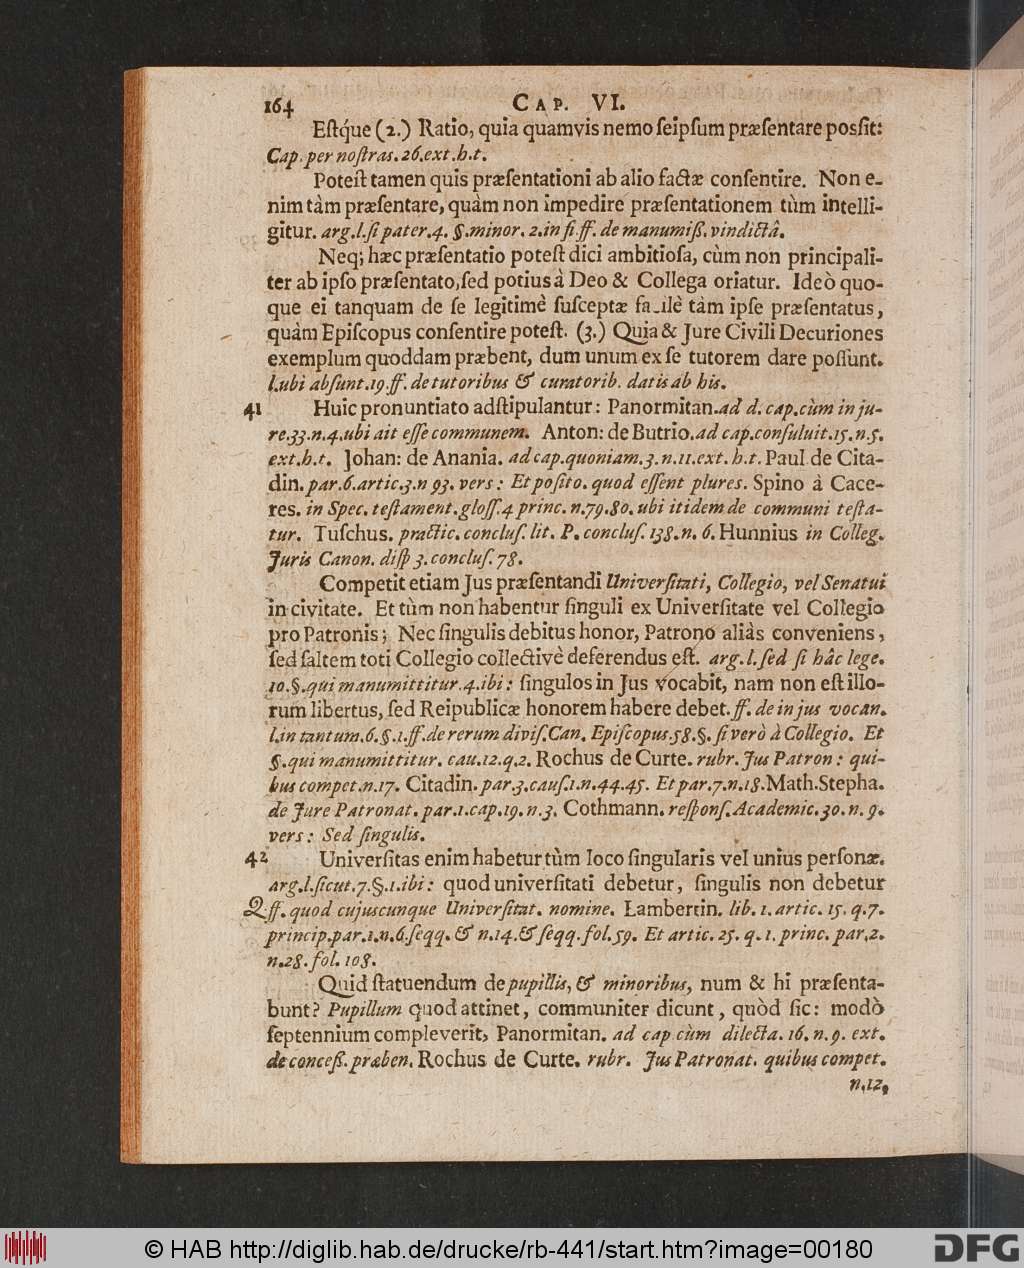 164 CAP. VI.
Eſtq́ue (2.) Ratio, quia quamvis nemo ſeipſum præſentare posſit:
Cap. per noſtras. 26. ext. h. t.
Poteſt tamen quis præſentationi ab alio factæ conſentire. Non e-
nim tàm præſentare, quàm non impedire præſentationem tùm intelli-
gitur. arg. l. ſi pater. 4. §. minor. 2. in fi. ff. de manumiß. vindictâ.
Neq; hæc præſentatio poteſt dici ambitioſa, cùm non principali-
ter ab ipſo præſentato, ſed potius à Deo & Collega oriatur. Ideò quo-
que ei tanquam de ſe legitimè ſuſceptæ fa ilè tàm ipſe præſentatus,
quàm Epiſcopus conſentire poteſt. (3.) Quia & Jure Civili Decuriones
exemplum quoddam præbent, dum unum ex ſe tutorem dare poſſunt.
l. ubi abſunt. 19. ff. de tutoribus & curatorib. datis ab his.
41 Huic pronuntiato adſtipulantur: Panormitan. ad d. cap. cùm in ju-
re. 33. n. 4. ubi ait eſſe communem. Anton: de Butrio. ad cap. conſuluit. 15. n. 5.
ext. h. t. Johan: de Anania. ad cap. quoniam. 3. n. 11. ext. h. t. Paul de Cita-
din. par. 6. artic. 3. n 93. vers: Et poſito. quod eſſent plures. Spino à Cace-
res. in Spec. teſtament. gloſſ. 4 princ. n. 79. 80. ubi itidem de communi teſta-
tur. Tuſchus. practic. concluſ. lit. P. concluſ. 138. n. 6. Hunnius in Colleg.
Juris Canon. diſp 3. concluſ. 78.
Competit etiam Jus præſentandi Univerſitati, Collegio, vel Senatui
in civitate. Et tùm non habentur ſinguli ex Univerſitate vel Collegio
pro Patronis; Nec ſingulis debitus honor, Patrono aliàs conveniens,
ſed ſaltem toti Collegio collectivè deferendus eſt. arg. l. ſed ſi hâc lege.
10. §. qui manumittitur. 4. ibi: ſingulos in Jus vocabit, nam non eſt illo-
rum libertus, ſed Reipublicæ honorem habere debet. ff. de in jus vocan.
l. in tantum. 6. §. 1. ff. de rerum diviſ. Can. Epiſcopus. 58. §. ſi verò à Collegio. Et
§. qui manumittitur. cau. 12. q. 2. Rochus de Curte. rubr. Jus Patron: qui-
bus compet. n. 17. Citadin. par. 3. cauſ. 1. n. 44. 45. Et par. 7. n. 18. Math. Stepha.
de Jure Patronat. par. 1. cap. 19. n. 3. Cothmann. reſponſ. Academic. 30. n. 9.
vers: Sed ſingulis.
42 Univerſitas enim habetur tùm loco ſingularis vel unius perſonæ.
arg. l. ſicut. 7. §. 1. ibi: quod univerſitati debetur, ſingulis non debetur
ff. quod cujuscunque Univerſitat. nomine. Lambertin. lib. 1. artic. 15. q. 7.
princip. par. 1. n. 6. ſeqq. & n. 14. & ſeqq. fol. 59. Et artic. 25. q. 1. princ. par. 2.
n. 28. fol. 108.
Quid ſtatuendum de pupillis, & minoribus, num & hi præſenta-
bunt? Pupillum quod attinet, communiter dicunt, quòd ſic: modò
ſeptennium compleverit, Panormitan. ad cap cùm dilecta. 16. n. 9. ext.
de conceß. præben. Rochus de Curte. rubr. Jus Patronat. quibus compet.
n. 12,
© HAB http://diglib.hab.de/drucke/rb-441/start.htm?image=00180
DFG